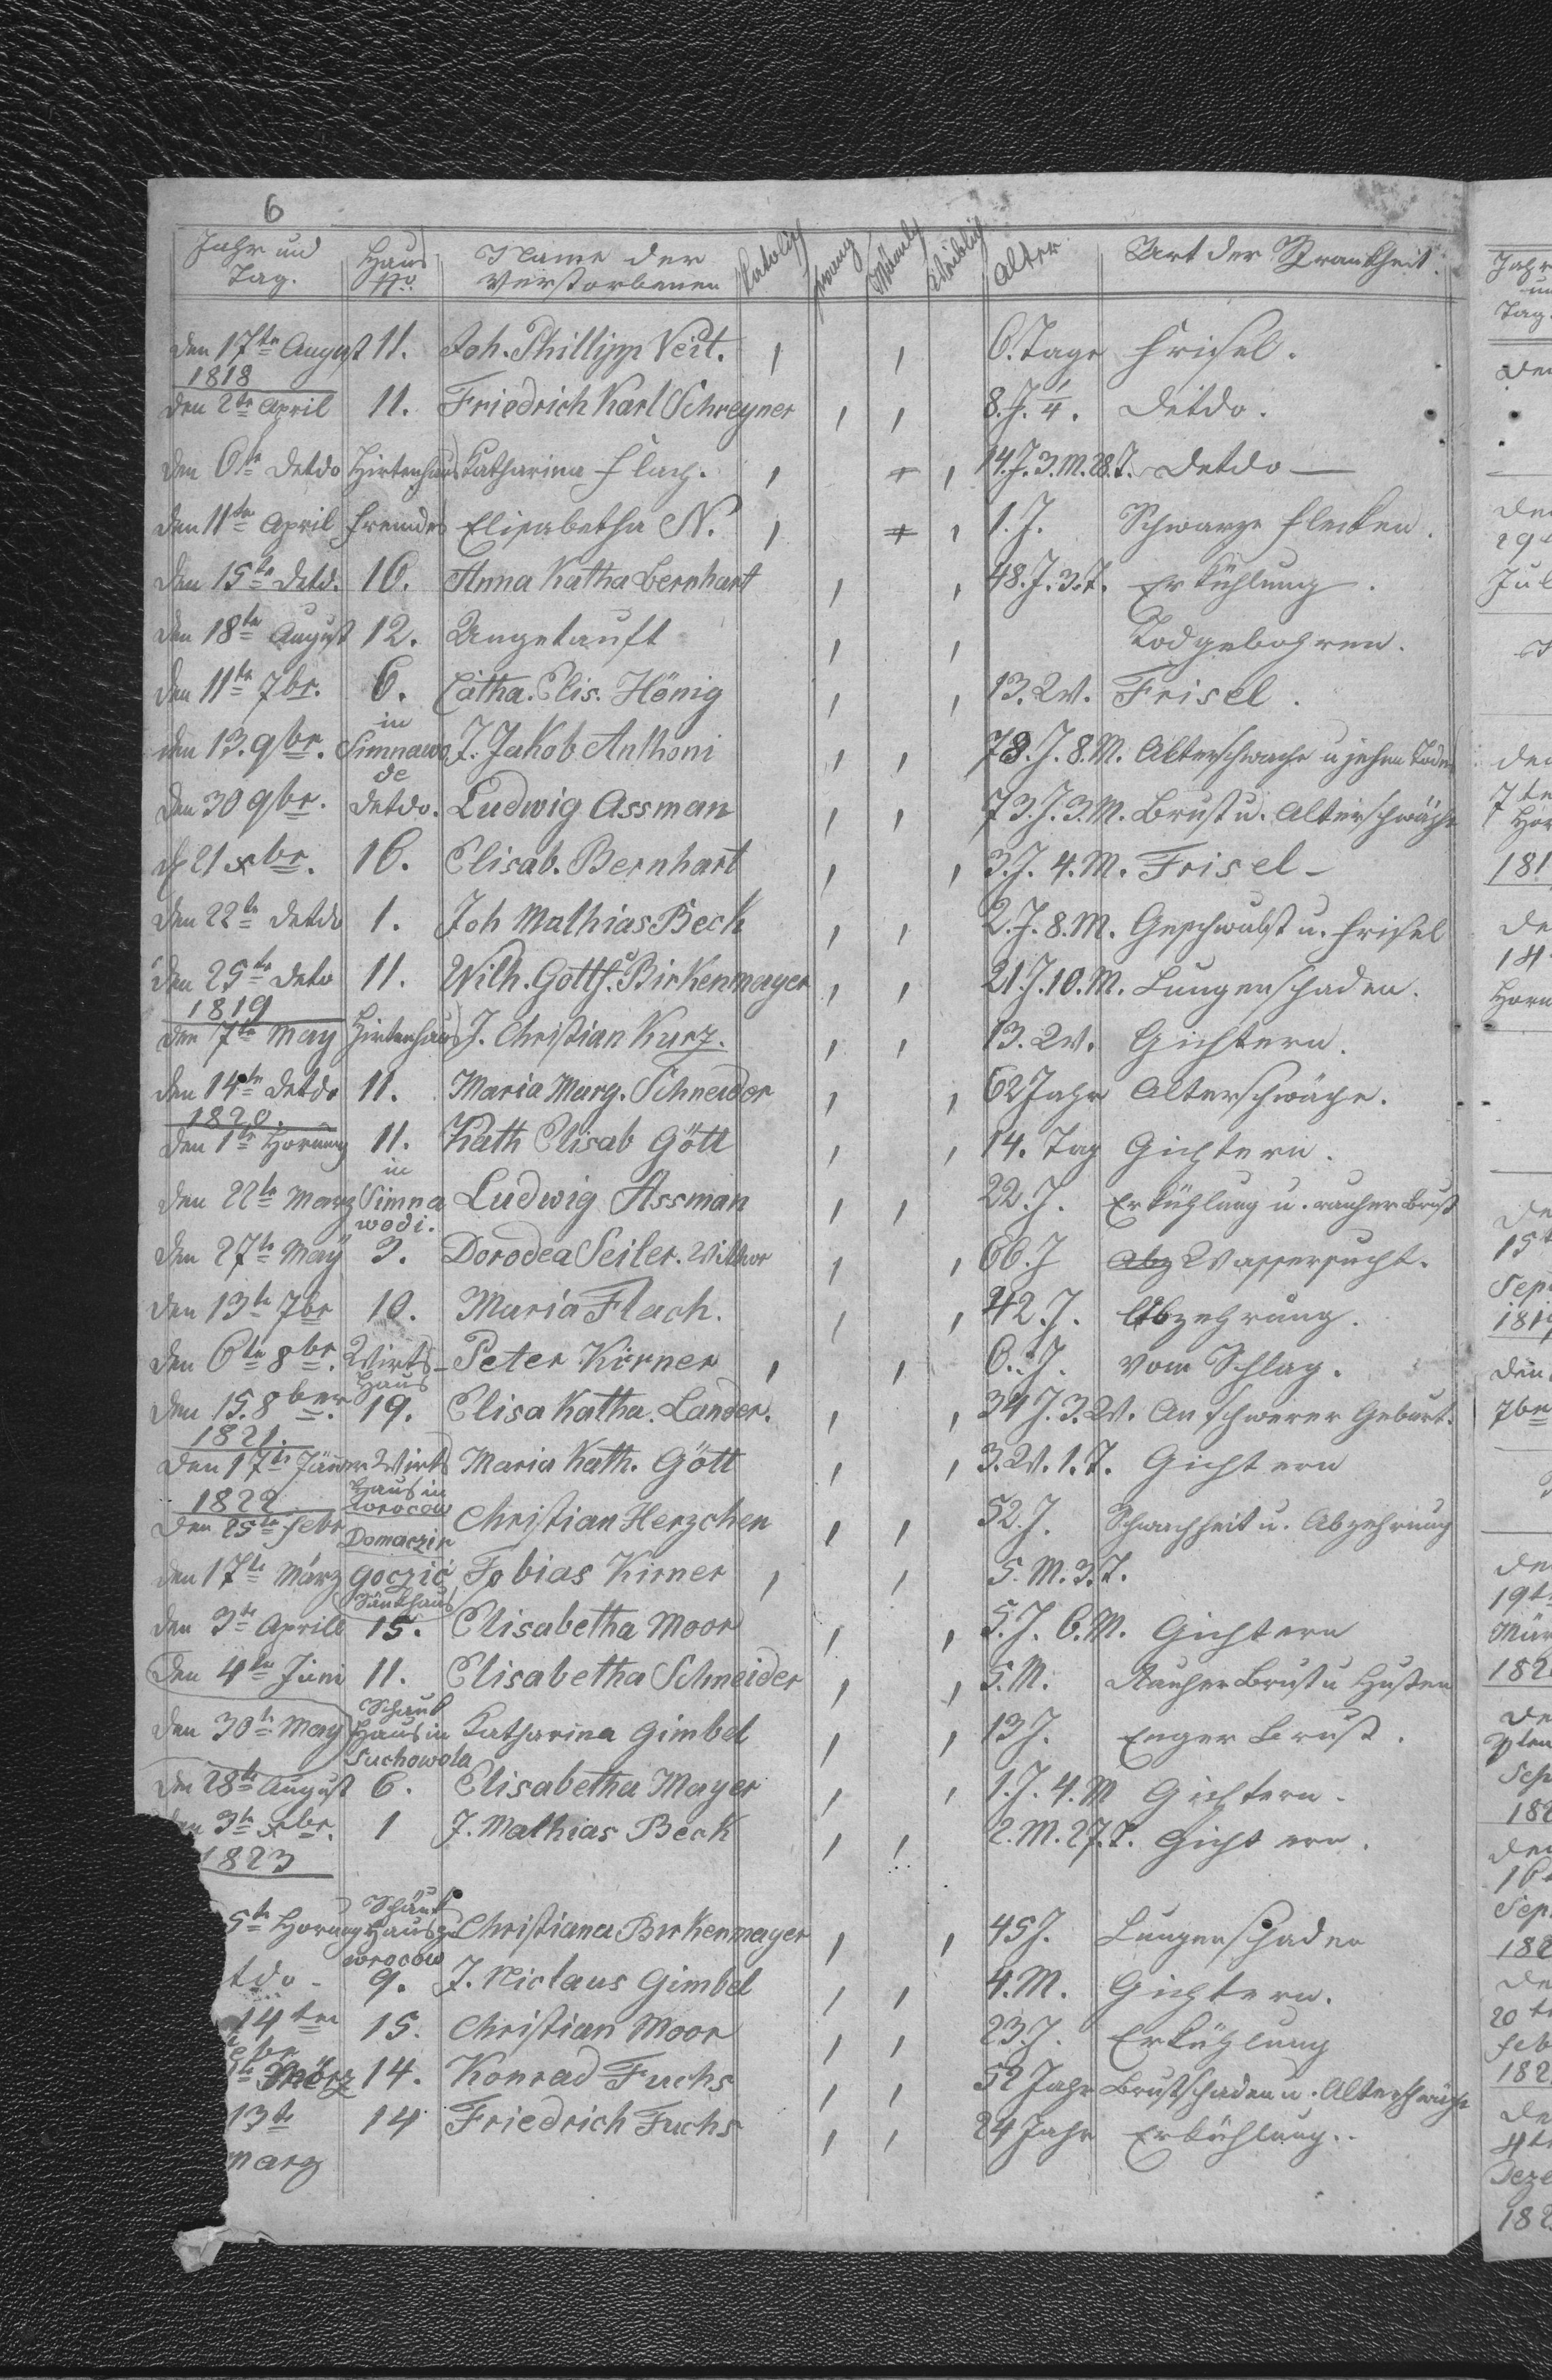 6
Jahr und Tag. Haus No. Name der Verstorbenen Katolisch Evang. Männlich Weiblich Alter Art der Krankheit.
den 17te August 11. Joh. Phillipp Veit. 6. Tage Frisel.
1818
den 2te April 11. Friedrich Karl Schreyner 8. J. 1/4. Detdo.
den 6te Detdo Hirtenhaus Katharina Flach. 14. J. 3. M. 28. T. Detdo
den 11te April Fremdes Elisabetha N. 1. J. Schwarze Flecken.
den 15te Detd. 16. Anna Katha Bernhart 48. J. 3. T. Erkühlung.
den 18te August 12. Ungetauft Todgebohren.
den 11te 7br. 6. Catha. Elis. Hönig 13. W. Frisel.
den 13. 9br. in Simnawode J. Jakob Anthoni 78. J. 8. M. Alterschwache u jehen Todes
den 30 9br. Detdo. Ludwig Assman 73. J. 3. M. Brust u. Alterschwäche
d 21 xbr. 16. Elisab. Bernhart 3. J. 4. M. Frisel
den 22te Detdo 1. Joh Mathias Beck 2. J. 8. M. Geschwulst u. Frisel
den 25te Deto 11. Wilh. Gottf. Birkenmayer 21 J. 10. M. Lungenschaden.
1819
den 7te May Hirtenhaus J. Christian Kurz. 13. W. Gichtern.
den 14te Detdo 11. Maria Marg. Schneider 62 Jahr Alterschwäche.
1820.
den 1te Hornung 11. Kath Elisab Gött 14. Tag Gichtern.
den 22te Marz in Simnawodi. Ludwig Assman 22. J. Erkühlung u. rauher Brust
den 27te May 3. Dorodea Seiler. Witwer 66. J Abz Wassersucht.
den 13te 7br 10. Maria Flach. 42. J. Abzehrung.
den 6te 8br. Wirts-Haus Peter Kirner 6. J. vom Schlag.
den 15. 8ber. 19. Elisa Katha. Lander. 34 J. 3. W. An schwerer Geburt.
1821.
den 17te Jänner Wirts Haus in Worocow Maria Kath. Gött 3. W. 1. T. Gichtern
1822
den 25te Febr Domaczir Christian Herzchen 52. J. Schwachheit u. Abzehrung
den 17te März goczić Tobias Kirner 5. M. 3. T.
den 3te Aprill 15. Elisabetha Moor 5. J. 6. M. Gichtern
den 4te Juni 11. Elisabetha Schneider 5. M. Rauher Brust u Husten
den 30te May Schank Haus in Suchowola Katharina Gimbel 13 J. Enger Brust.
den 28te August 6. Elisabetha Mayer 1. J. 4. M Gichtern.
den 3te xbr. 1 J. Mathias Beck 2. M. 27. T. Gichtern.
1823
5te Hornung Schänk Haus zu wrocow Christiana Birkenmayer 45 J. Lungenschaden
tdo 9. J. Niclaus Gimbel 4. M. Gichtern.
14ten 15. Christian Moor 23. J. Erkühlung
März 14. Konrad Fuchs 52 Jahr Brustschaden u. Alterschwäche
13te 14 Friedrich Fuchs 24 Jahr Erkühlung.
marz
Jahr
Tag.
den
29
Jul
den
7te
Hor
181
de
14
Horn
15t
Sep
1819
den
7br
den
19t
Mär
182
Sep
182
den
16
Sep
182
20t
Feb
182
4t
Deze
182